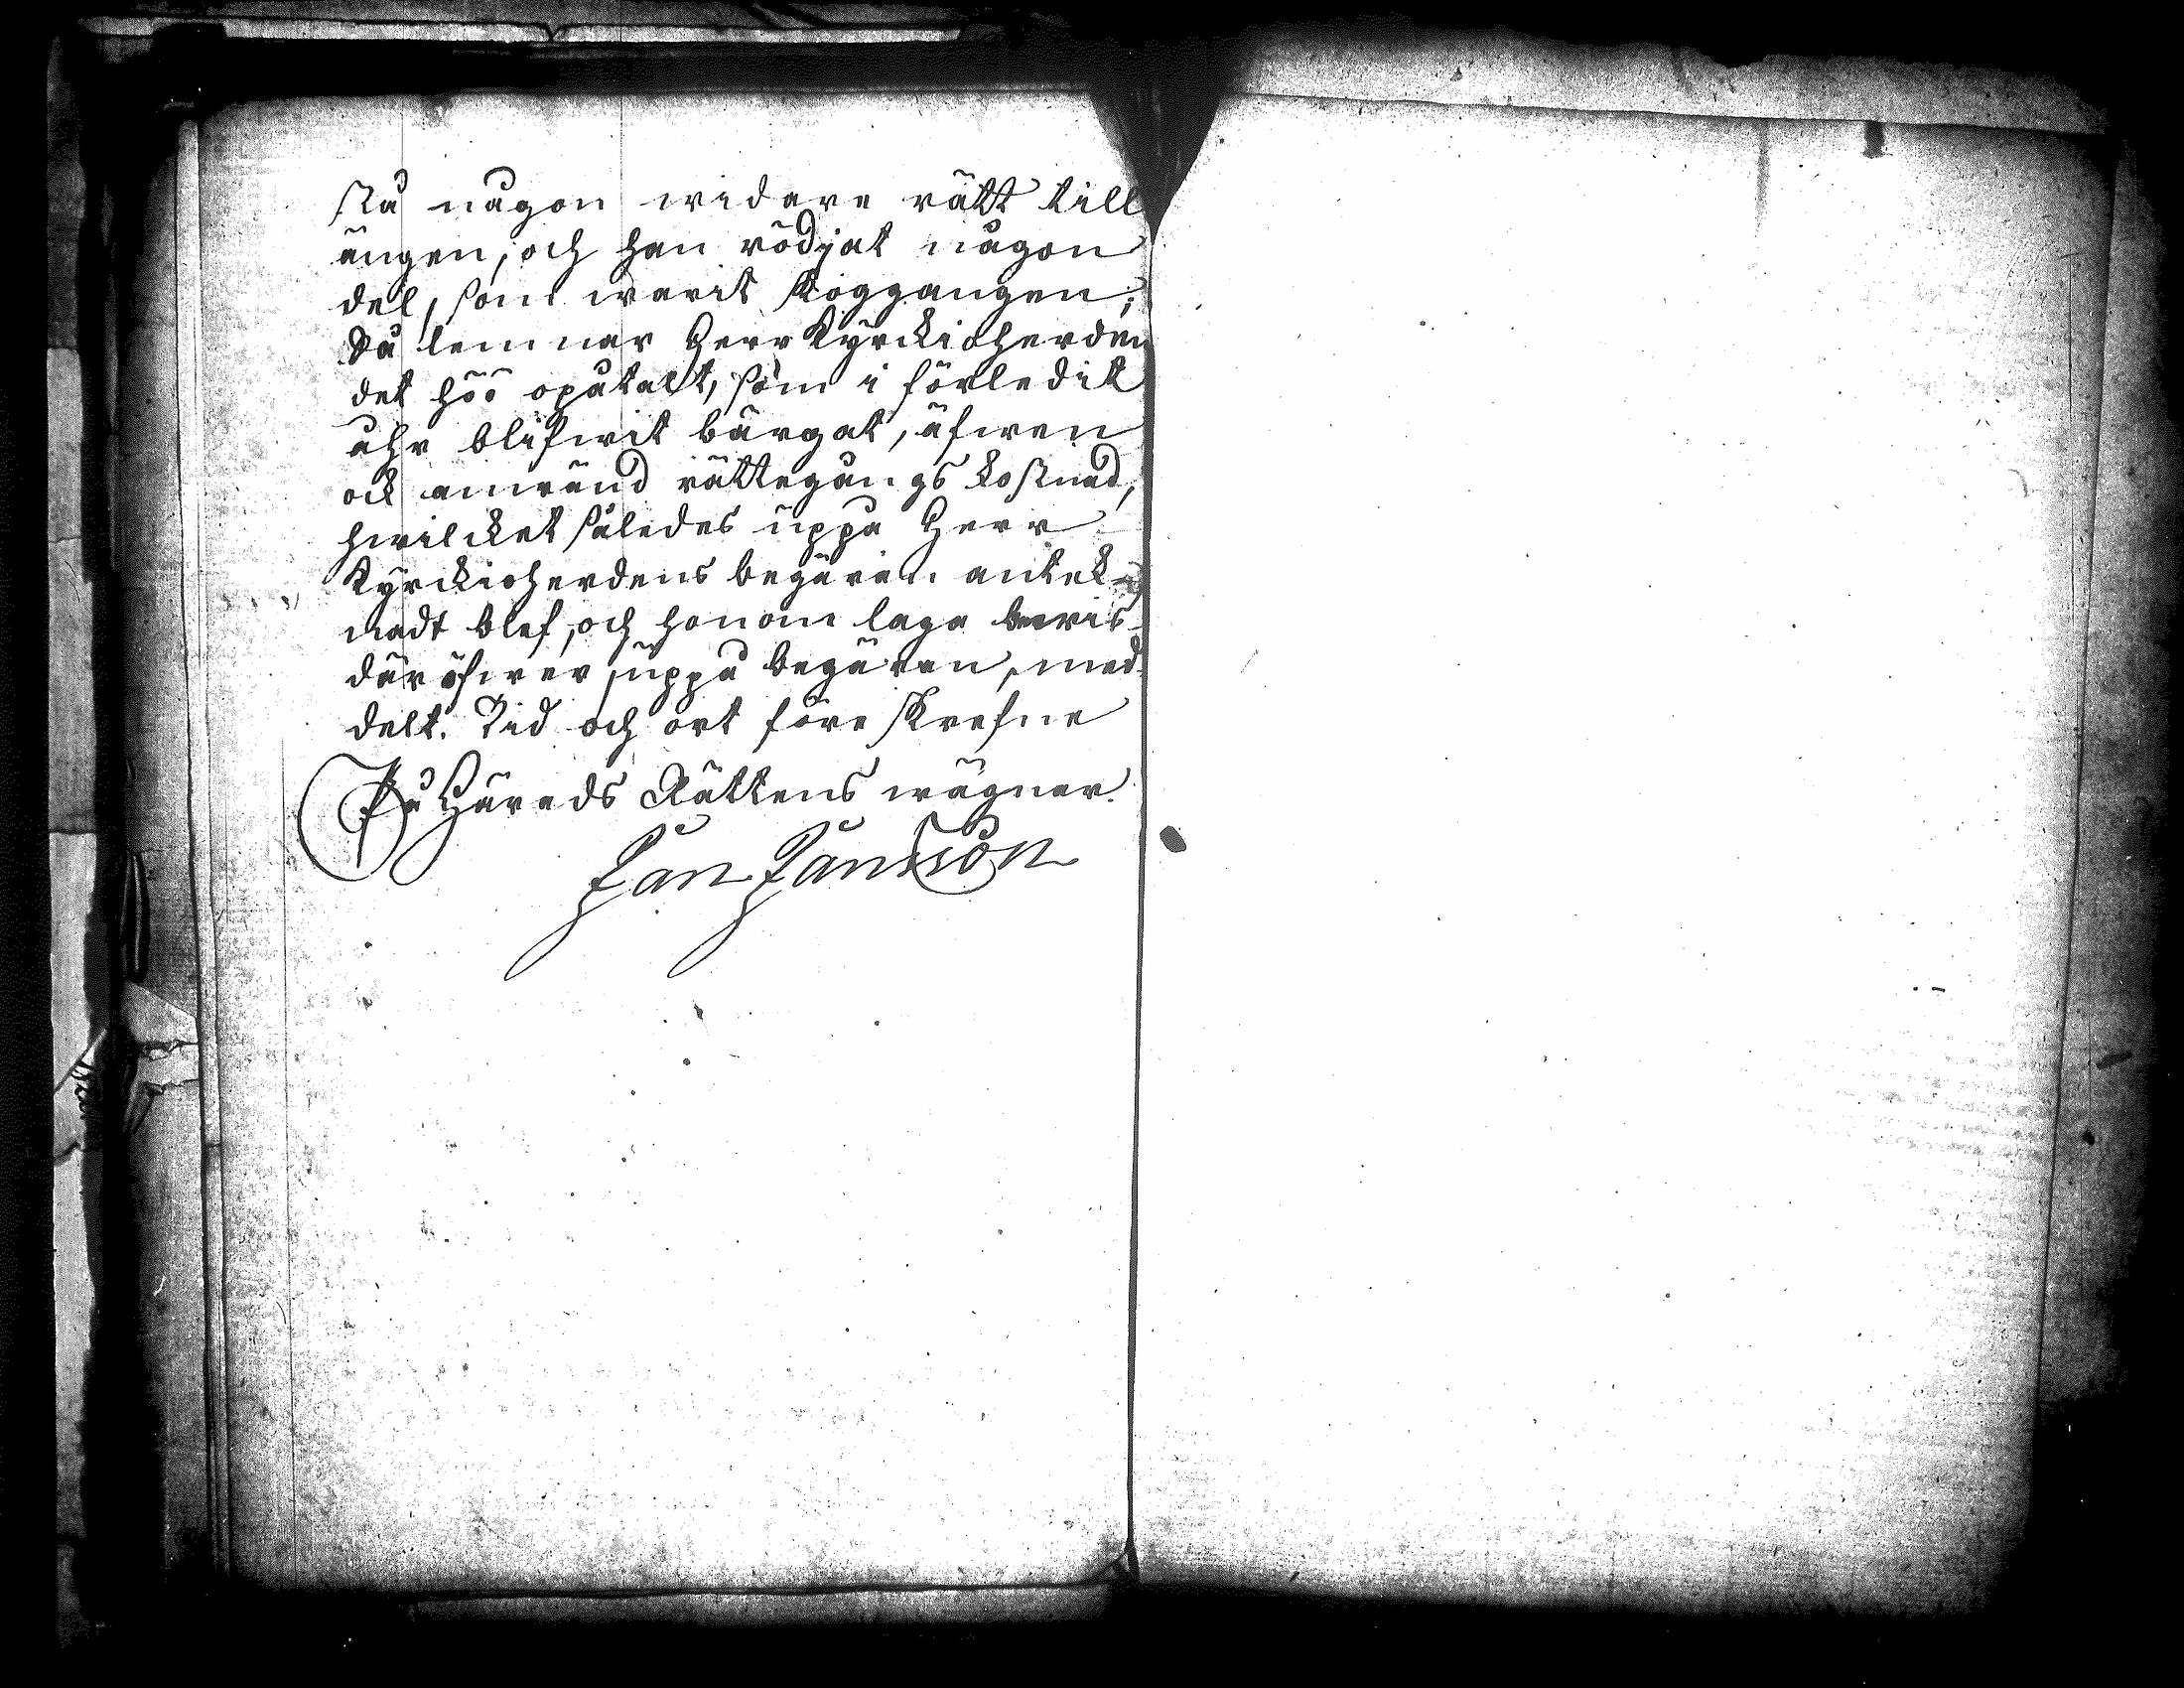 stå någon widare rätt till
ängen, och han rödjat någon
del, som warit skoggangen;
Så lemnar Herr Kyrckioherden
det höö opåtalt, som i förledit
åhr blifwit bärgat, äfwen
ock anwänd rättegångs kostnad,
hwilcket således uppå Herr
Kyrckioherdens begäran anteck-
nadt blef, och honom laga bewis
däröfwer, uppå begäran, med-
delt. Tid och ort före skrefne
På Härads Rättens wägnar.
Jan Jansson